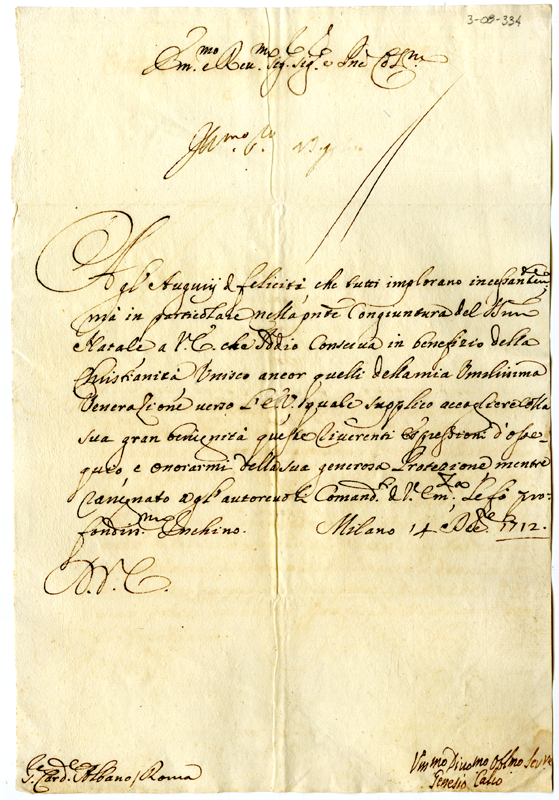 3-08-334
Em.mo e Reu.mo Sig.r Sig.r e P.ne Col.mo
Agl' Augurij di felicità che tutti implorano incessantem.te
mà in particolare nella pnte Congiuntura del S.mo
Natale a V.E. che Iddio Conserva in benefizio della
Christianità Unisco ancor quelli della mia Umilissima
Venerazione verso L'E.V. quale supplico accogliere colla
sua gran benignità queste riverenti espressioni d'osse-
quio e onorarmi della sua generosa Protezione, mentre
rasegnato agl' autorevoli Comand.ti di V. Em.za Le fò pro-
fondiss.mo Inchino. Milano 14 Dec.e 1712.
D.V.E.
S.r Card.le Albano / Roma
Um.mo Diu.mo Obl.mo Ser.re
Genesio Calco